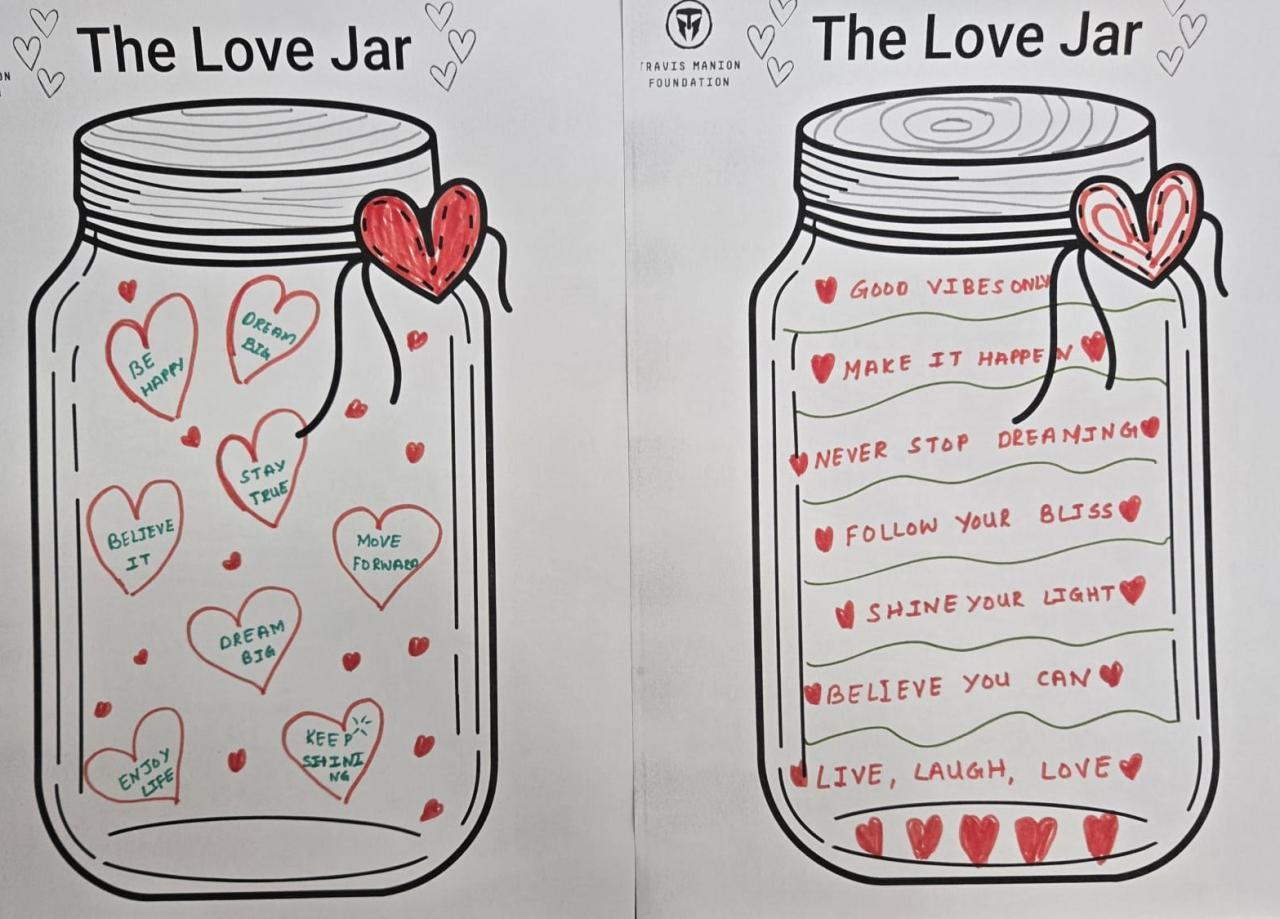 ON
The Love Jar
BE
HAPPY
DREAM
BIG
STAY
TRUE
BELIEVE
IT
MOVE
FORWARD
DREAM
BIG
ENJOY
LIFE
KEEP
SHINI
NG
TRAVIS MANION
FOUNDATION
The Love Jar
GOOD VIBES ONLY
MAKE IT HAPPEN
NEVER STOP DREAMING
FOLLOW YOUR BLISS
SHINE YOUR LIGHT
BELIEVE YOU CAN
LIVE, LAUGH, LOVE